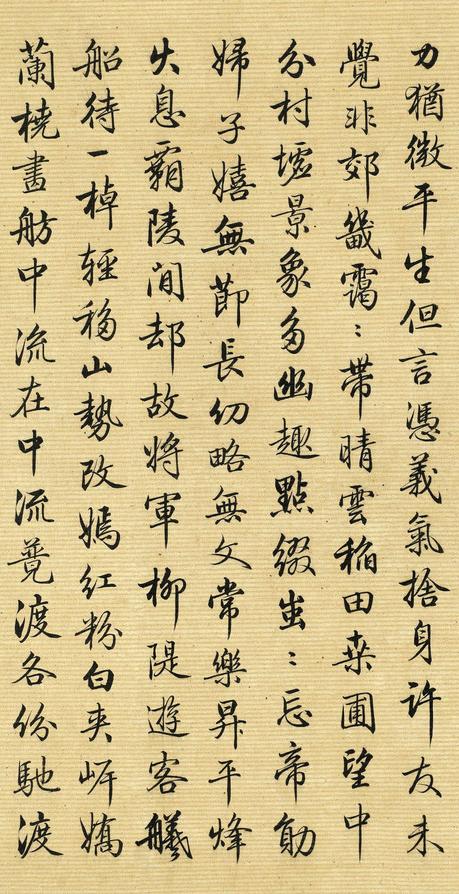 力猶徴平生但言憑義氣捨身許友未
覺非郊畿靄〻帶晴雲稲田桒圃望中
分村墟景象多幽趣點綴蚩〻忘帝勛
婦子嬉無節長幼略無文常樂昇平烽
火息霸陵閒却故將軍柳隄遊客艤
船待一棹輕移山勢改嫣紅粉白夹岸嬌
蘭橈畫舫中流在中流競渡各份馳渡